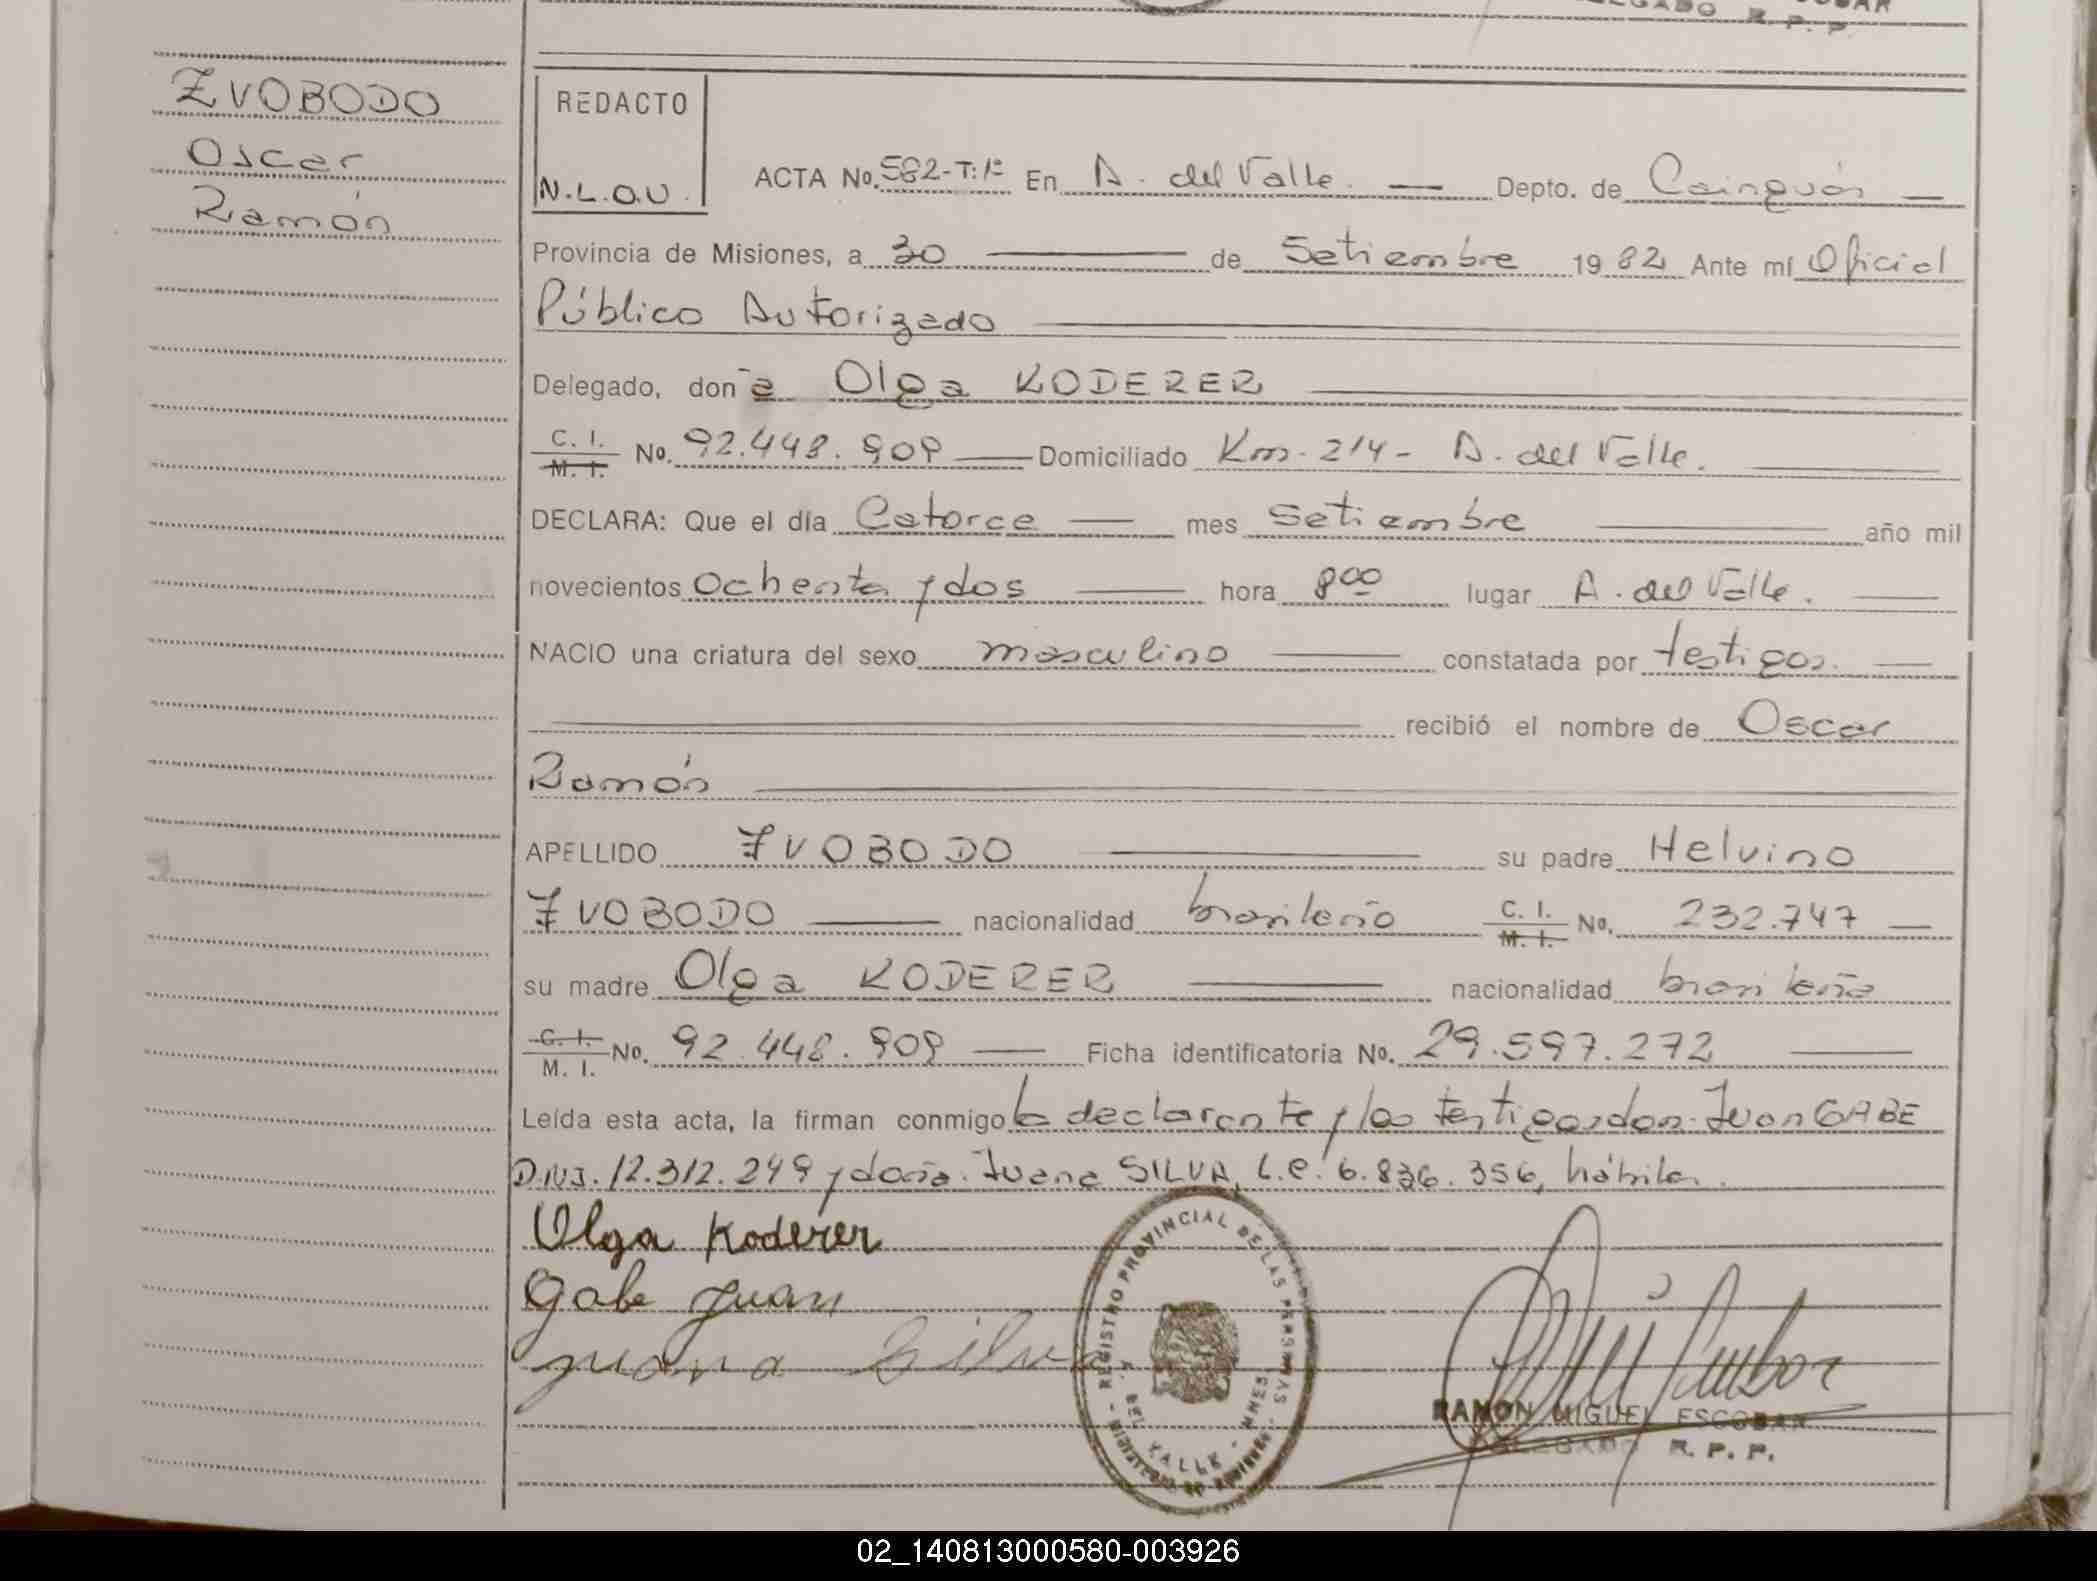 ZVOBODO
Oscar
Ramón
DELEGADO R. P. P.
REDACTO
N.L.O.U.
ACTA No. 582-T:1º En A. del Valle. — Depto. de Cainguás —
Provincia de Misiones, a 30 — de Setiembre 1982 Ante mí Oficial
Público Autorizado
Delegado, don ̃a Olga KODERER
C. I. M. I. No. 92.448.909 — Domiciliado Km. 214 - A. del Valle.
DECLARA: Que el día Catorce — mes Setiembre — año mil
novecientos ochenta y dos — hora 8oo lugar A. del Valle. —
NACIO una criatura del sexo masculino — constatada por testigos. —
recibió el nombre de Oscar
Ramón
APELLIDO ZVOBODO — su padre Helvino
ZVOBODO — nacionalidad brasileño C. I. M. I. No. 232.747 —
su madre Olga KODERER — nacionalidad brasileña
C. I. M. I. No. 92.448.909 — Ficha identificatoria No. 29.597.272 —
Leída esta acta, la firman conmigo la declarante y los testigos don. Juan GABE
D.N.I. 12.312.249 y doña. Juana SILVA, L.C. 6.836.356, hábiles.
Olga Koderer
Gabe Juan
Juana Silva
REGISTRO PROVINCIAL DE LAS PERSONAS
A. DEL VALLE - MNES
RAMON MIGUEL ESCOBAR
DELEGADO R. P. P.
02_140813000580-003926